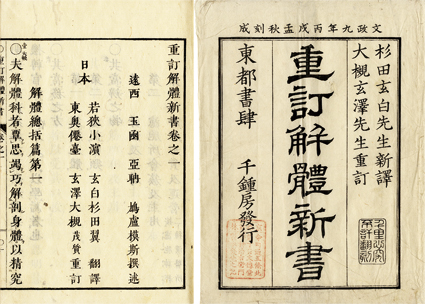 文政九年丙戌孟秋刻成
杉田玄白先生新譯
大槻玄澤先生重訂
重訂解體新書
東都書肆 千鍾房發行
千里必究
不許翻刻
重訂解體新書卷之一
遠西 玉函 亞聃 鳩盧模斯撰述
日本
若狹小濱 玄白杉田翼 翻譯
東奧僊臺 玄澤大槻茂質 重訂
解體總括篇第一
夫解體科者覃思竭巧解剖身體以精究
重訂解體新書